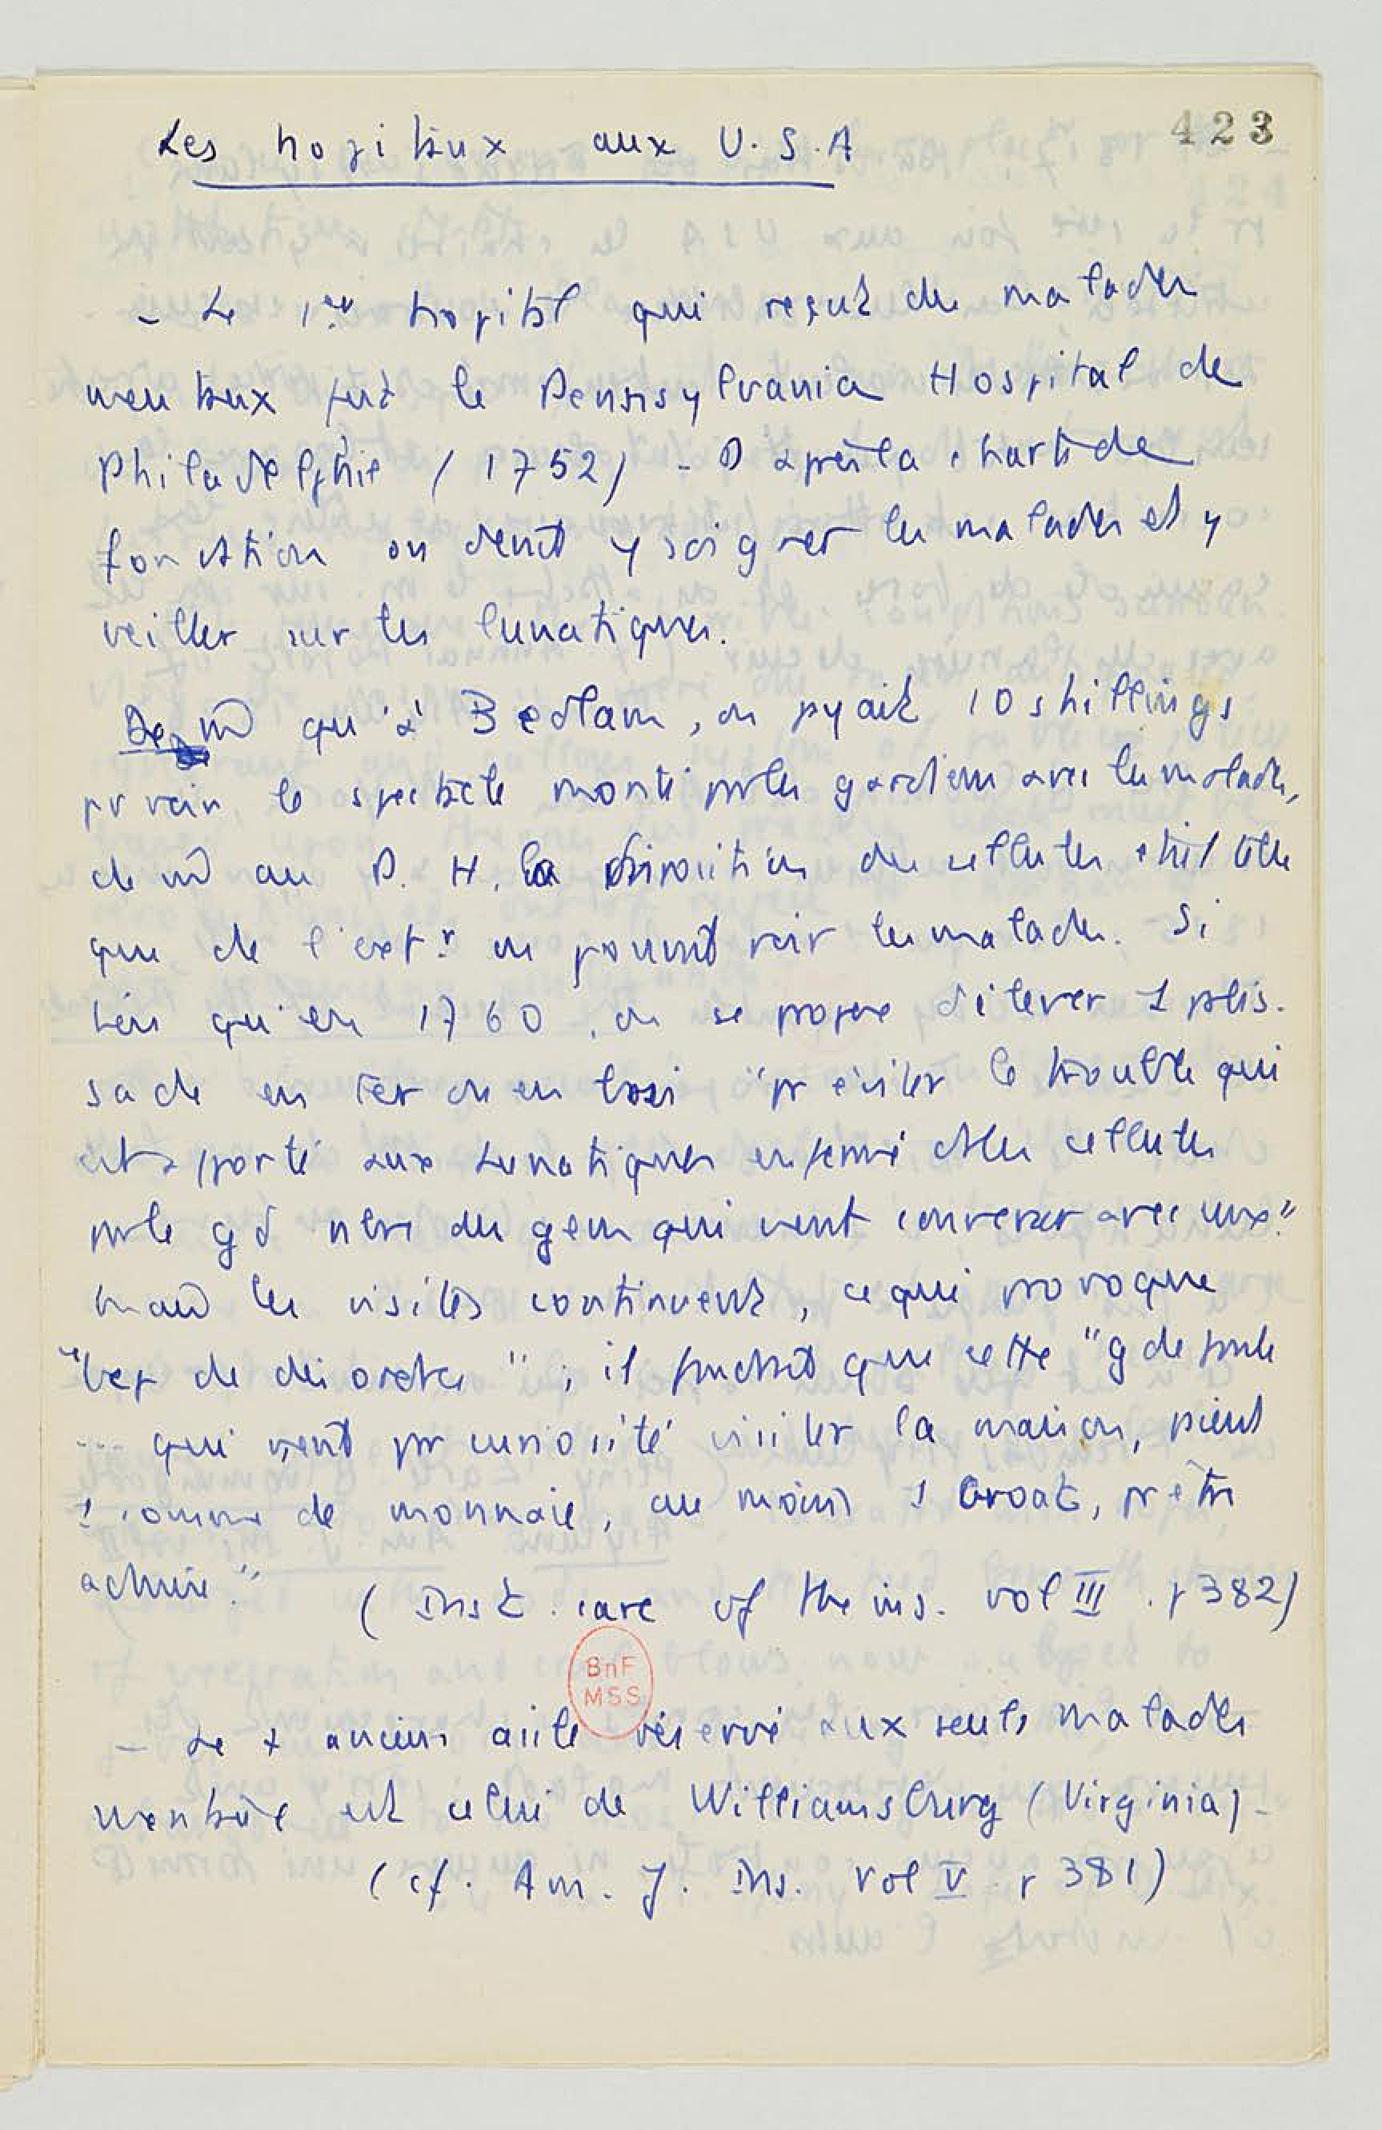 423
Les hopitaux aux U.S.A
- Le 1er hopital qui reçut des malades
mentaux fut le Pennsylvania Hospital de
Philadelphie (1752) - D'après la charte de
fondation on devait y soigner les malades et y
veiller sur les lunatiques.
De m̂ qu'à Bedlam, on payait 10 shillings
pr voir le spectacle monté par les gardiens avec les malades,
de m̂ au P. H. la disposition des cellules était telle
que de l'extr on pouvait voir les malades. Si
bien qu'en 1760, on se propose d'élever 1 palis-
sade en fer ou en bois "pr éviter le trouble qui
est apporté aux lunatiques enfermés ds les cellules
par le gd nbre des gens qui vient converser avec eux"
mais les visites continuent, ce qui provoque
"bcp de désordre"; il faudrait que cette "gde foule
... qui vient par curiosité visiter la maison, paient
1 somme de monnaie, au moins 1 Groat, pr être
admis."
(Inst. care of the ins. vol III. p 382)
BnF
MSS
- Le + ancien asile réservé aux seuls malades
mentaux est celui de Williamsburg (Virginia) -
(cf. Am. J. Ins. vol V p 381)